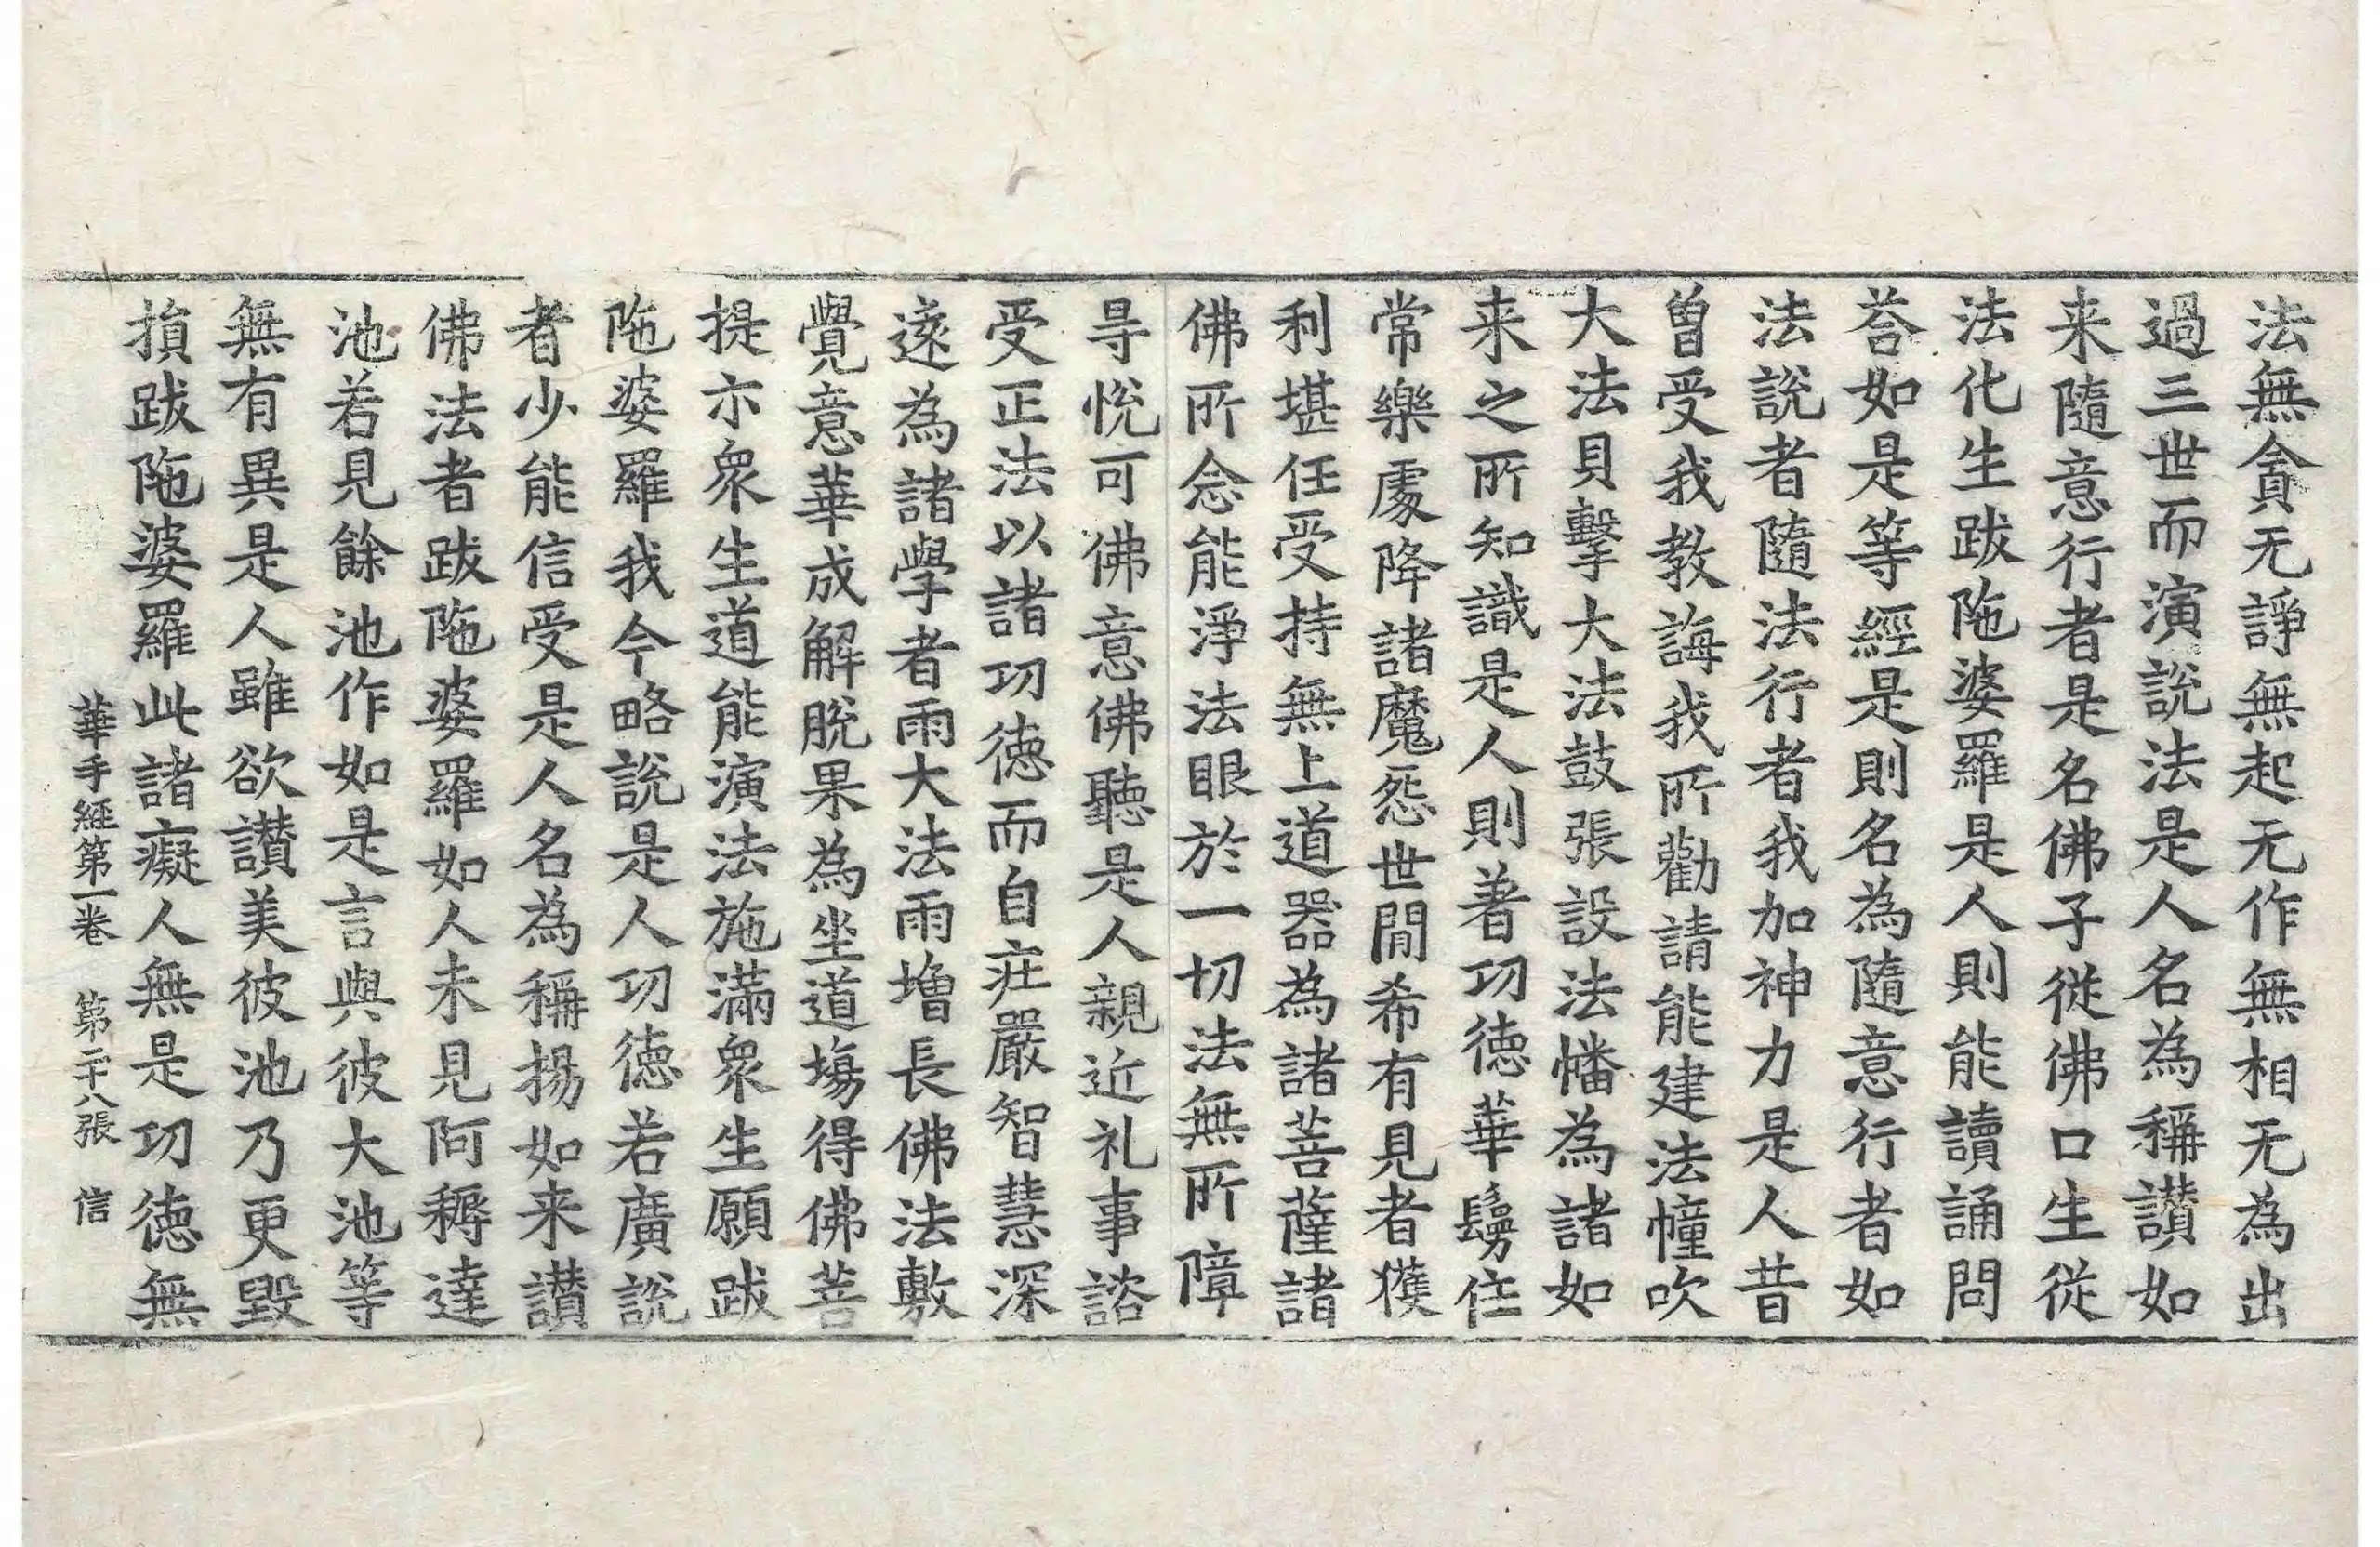 法無貪无諍無起无作無相无為出
過三世而演說法是人名為稱讃如
来隨意行者是名佛子從佛口生從
法化生跋陁婆羅是人則能讀誦問
荅如是等經是則名為隨意行者如
法說者隨法行者我加神力是人昔
曽受我教誨我所勸請能建法幢吹
大法貝擊大法鼓張設法幡為諸如
来之所知識是人則著功徳華鬘住
常樂處降諸魔怨世閒希有見者獲
利堪任受持無上道器為諸菩薩諸
佛所念能淨法眼於一切法無所障
㝵悅可佛意佛聽是人親近礼事諮
受正法以諸功徳而自庄嚴智慧深
邃為諸學者雨大法雨增長佛法敷
覺意華成解脫果為坐道塲得佛菩
提示衆生道能演法施滿衆生願跋
陁婆羅我今略說是人功徳若廣說
者少能信受是人名為稱揚如来讃
佛法者跋陁婆羅如人未見阿耨達
池若見餘池作如是言與彼大池等
無有異是人雖欲讃美彼池乃更毀
損跋陁婆羅此諸癡人無是功徳無
華手經第一卷 第二十八張 信